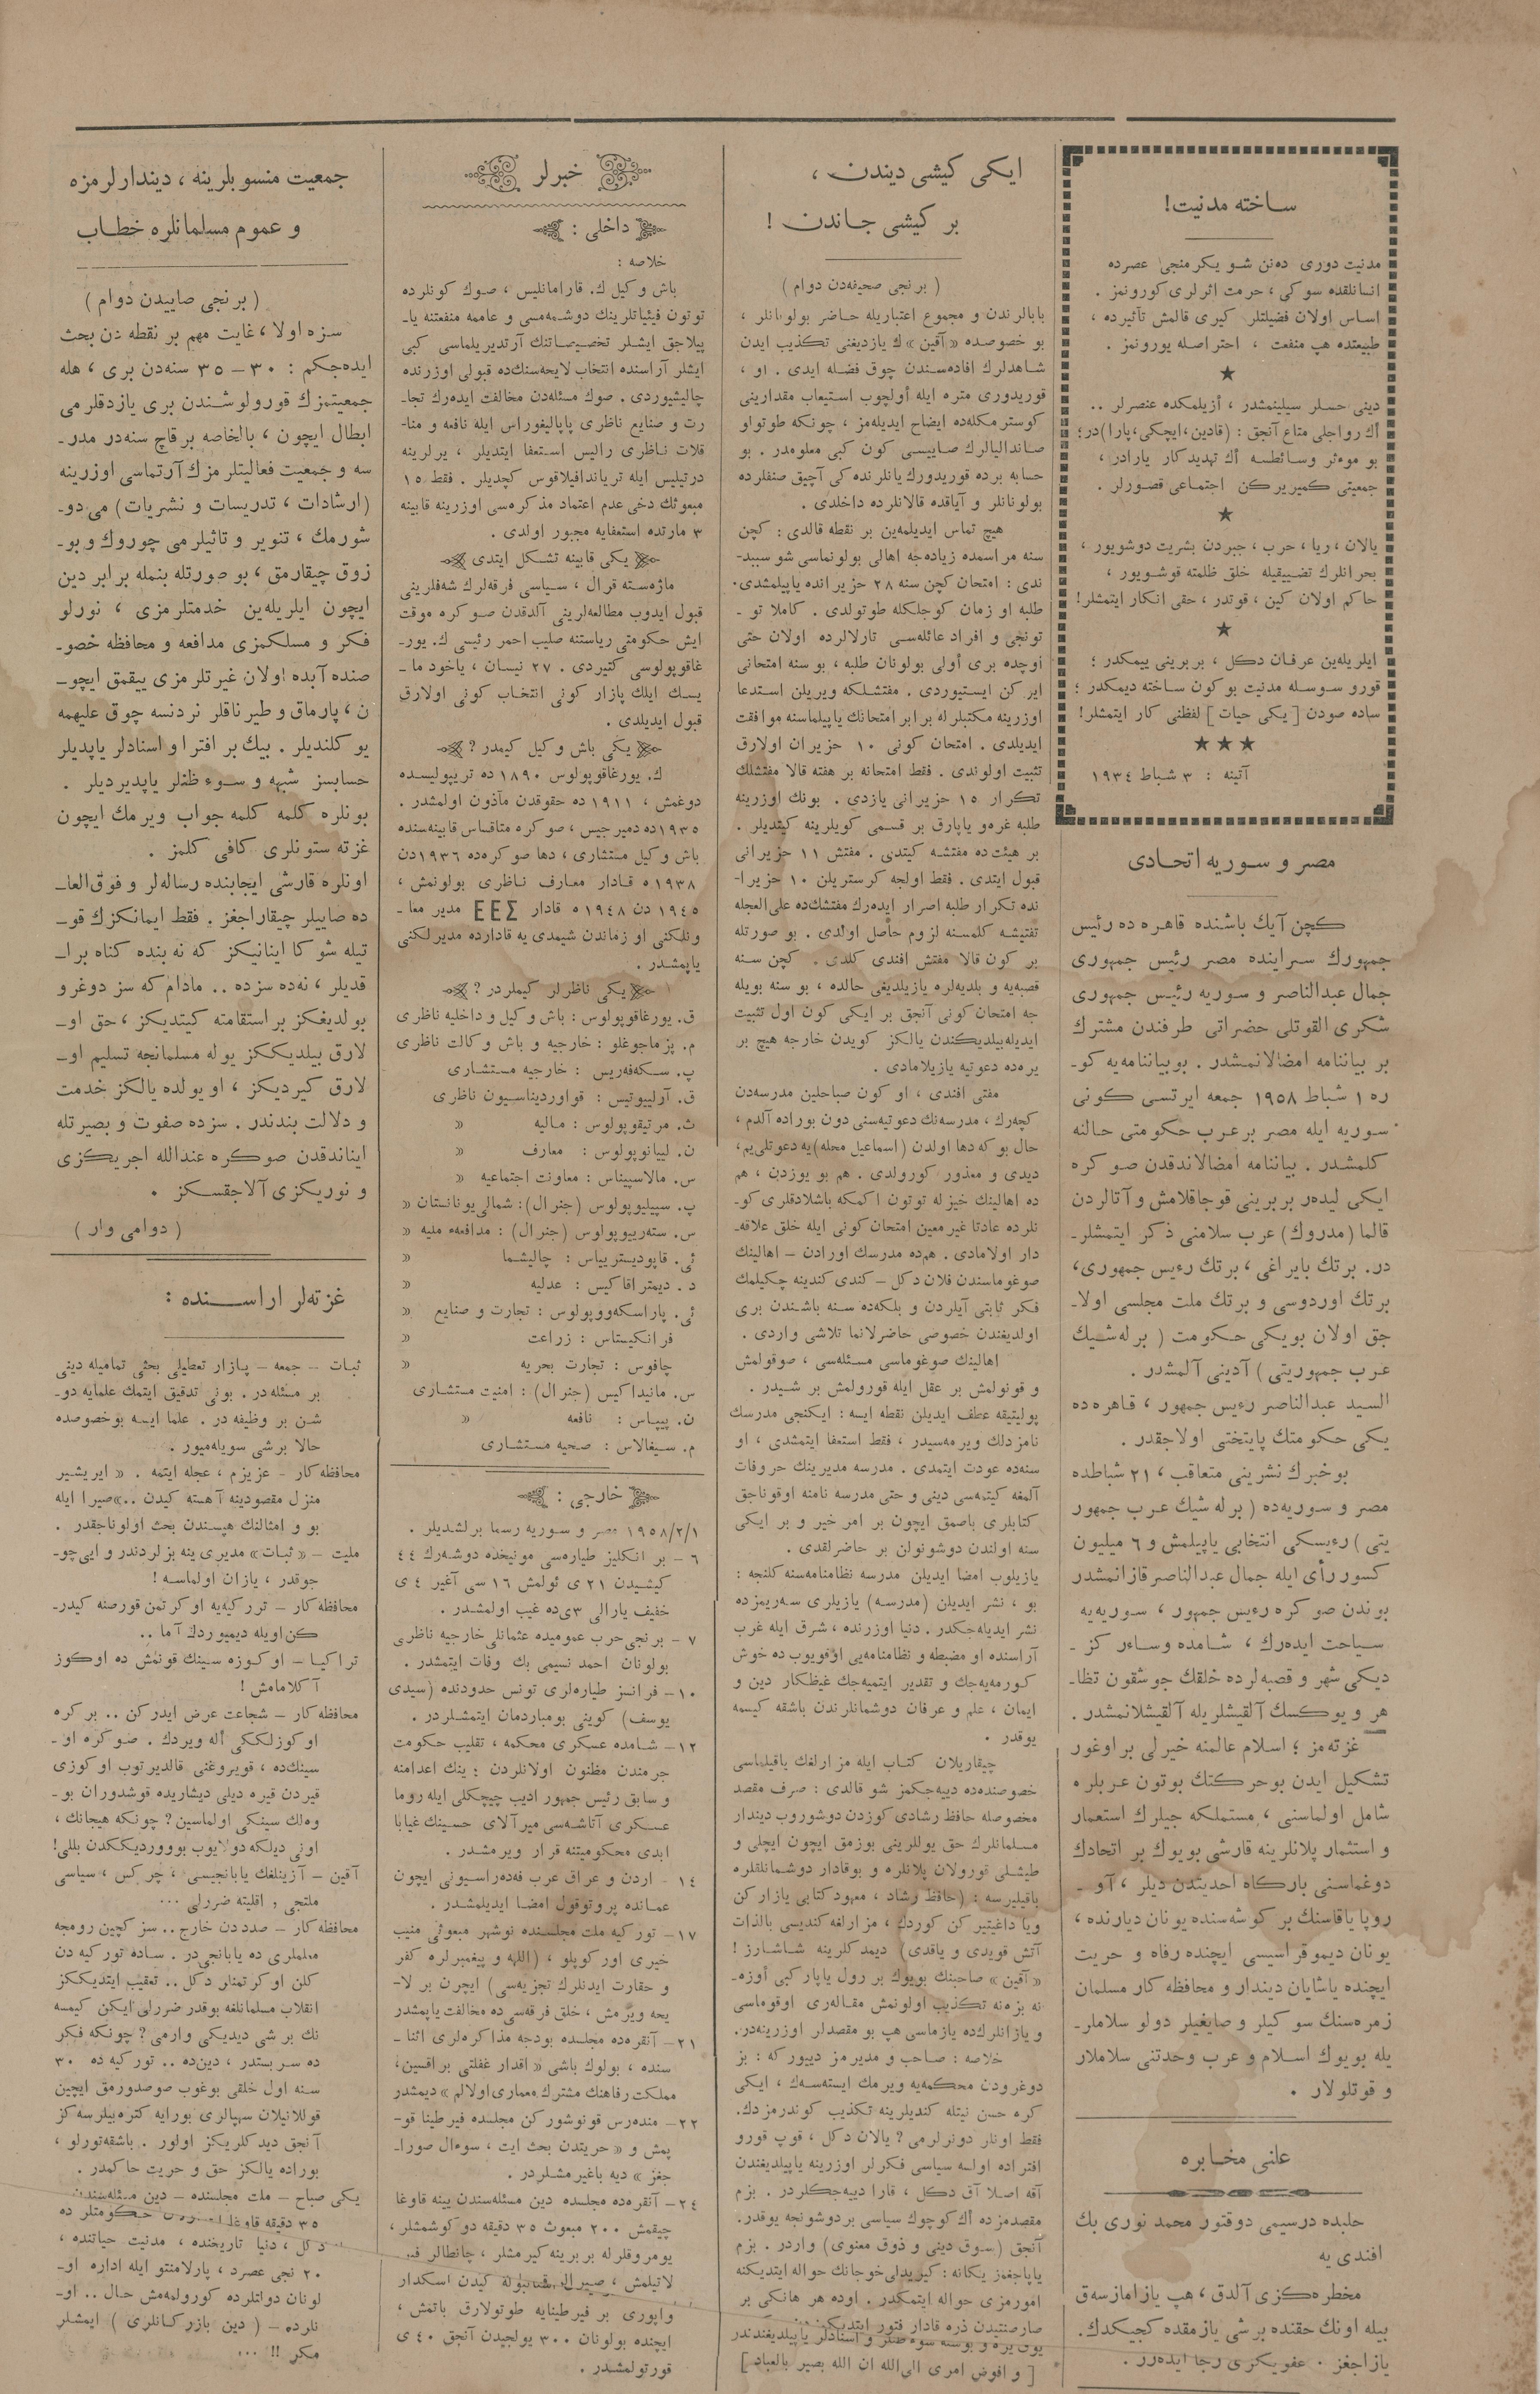 ساخته مدنیت!
مدنیت دوری دەنن شو یكرمنجی عصرده
انسانلقده سوكی ، حرمت اثرلری كورونمز .
اساس اولان فضیلتلر كیری قالمش تأثیرده ،
طبیعتده هپ منفعت ، احتراصله یورونمز .
★
دینی حسلر سیلینمشدر ، أزیلمكده عنصرلر ..
أك رواجلی متاع آنجق : (قادین،ایچكی،پارا)در؛
بو موءثر وسائطسه أك تهدیدكار یارادر ،
جمعیتی كمیریركن اجتماعی قصورلر .
★
یالان ، ریا ، حرب ، جبردن بشریت دوشویور ،
بحرانلرك تضییقیله خلق ظلمته قوشویور ،
حاكم اولان كین ، قوتدر ، حقی انكار ایتمشلر!
★
ایلریلەین عرفان دكل ، بربرینی ییمكدر ؛
قورو سوسله مدنیت بوكون ساخته دیمكدر ؛
ساده صودن [یكی حیات] لفظنی كار ایتمشلر!
★ ★ ★
آتینه : ٣ شباط ١٩٣٤
مصر و سوریه اتحادی
كچن آیك باشنده قاهره ده رئیس
جمهورك سراینده مصر رئیس جمهوری
جمال عبدالناصر و سوریه رئیس جمهوری
شكری القوتلی حضراتی طرفندن مشترك
بر بیاننامه امضالانمشدر . بوبیاننامه یه كو-
ره ١ شباط ١٩٥٨ جمعه ایرتسی كونی
سوریه ایله مصر برعرب حكومتی حالنه
كلمشدر . بیاننامه امضالاندقدن صوكره
ایكی لیدەر بربرینی قوجاقلامش و آنالردن
قالما (مدروك) عرب سلامنی ذكر ایتمشلر-
در. برتك بایراغی ، برتك رءیس جمهوری،
برتك اوردوسی و برتك ملت مجلسی اولا-
جق اولان بویكی حكومت ( برلەشیك
عرب جمهوریتی ) آدینی آلمشدر .
السید عبدالناصر رءیس جمهور ، قاهره ده
یكی حكومتك پایتختی اولاجقدر .
بوخبرك نشرینی متعاقب ، ٢١ شباطده
مصر و سوریەده ( برلەشیك عرب جمهور
یتی ) رءیسكی انتخابی یاپیلمش و ٦ میلیون
كسور رأی ایله جمال عبدالناصر قازانمشدر
بوندن صوكره رءیس جمهور ، سوریەیه
سیاحت ایدەرك ، شامده وساءر كز -
دیكی شهر و قصبەلرده خلقك جوشقون تظا-
هر و یوكسك آلقیشلریله آلقیشلانمشدر .
غزتەمز ؛ اسلام عالمنه خیرلی بر اوغور
تشكیل ایدن بوحركتك بوتون عربلره
شامل اولماسنی ، مستملكه جیلرك استعمار
و استثمار پلانلرینه قارشی بویوك بر اتحادك
دوغماسنی بارگاه احدیتدن دیلر ، آو -
روپا یاقاسنك بر كوشەسنده یونان دیارنده ،
یونان دیموقراسیسی ایچنده رفاه و حریت
ایچنده یاشایان دیندار و محافظه كار مسلمان
زمرەسنك سوكیلر و صایغیلر دولو سلاملر-
یله بویوك اسلام و عرب وحدتنی سلاملار
و قوتلولار .
علنی مخابره
حلبده درسیمی دوقتور محمد نوری بك
افندی یه
مخطره كزی آلدق ، هپ یازامازسەق
بیله اونك حقنده برشی یازمقده كجیكدك.
یازاجغز . عفویكزی رجا ایدەرز .
ایكی كیشی دیندن ،
بر كیشی جاندن !
( برنجی صحیفەدن دوام )
بابالرندن و مجموع اعتباریله حاضر بولونانلر ،
بو خصوصده «آقین»ك یازدیغنی تكذیب ایدن
شاهدلرك افادەسندن چوق فضله ایدی . او ،
قوریدوری متره ایله أولچوب استیعاب مقدارینی
كوسترمكلەده ایضاح ایدیلەمز ، چونكه طوتولو
صاندالیالرك صاییسی كون كبی معلومدر . بو
حسابه برده قوریدورك یانلرنده كی آچیق صنفلرده
بولونانلر و آیاقده قالانلرده داخلدی .
هیچ تماس ایدیلمەین بر نقطه قالدی : كچن
سنه مراسمده زیادەجه اهالی بولونماسی شو سببد-
ندی : امتحان كچن سنه ٢٨ حزیرانده یاپیلمشدی.
طلبه او زمان كوجلكله طوتولدی . كاملا تو -
تونجی و افراد عائلەسی تارلالرده اولان حتی
اوچده بری أولی بولونان طلبه ، بو سنه امتحانی
ایركن ایستیوردی . مفتشلكه ویریلن استدعا
اوزرینه مكتبلرله برابر امتحانك یاپیلماسنه موافقت
ایدیلدی . امتحان كونی ١٠ حزیران اولارق
تثبیت اولوندی . فقط امتحانه بر هفته قالا مفتشلك
تكرار ١٥ حزیرانی یازدی . بونك اوزرینه
طلبه غرەو یاپارق بر قسمی كویلرینه كیتدیلر .
بر هیئت ده مفتشه كیتدی . مفتش ١١ حزیرانی
قبول ایتدی . فقط اولجه كرستریلن ١٠ حزیرا-
نده تكرار طلبه اصرار ایدەرك مفتشكده علی العجله
تفتیشه كلمسنه لزوم حاصل اولدی . بو صورتله
بر كون قالا مفتش افندی كلدی . كچن سنه
قصبەیه و بلدیەلره یازیلدیغی حالده ، بو سنه بویله
جه امتحان كونی آنجق بر ایكی كون اول تثبیت
ایدیلەبیلدیكندن یالكز كویدن خارجه هیچ بر
یرەده دعوتیه یازیلامادی .
مفتی افندی ، او كون صباحلین مدرسەدن
كچەرك ، مدرسەنك دعوتیەسنی دون بوراده آلدم ،
حال بوكه دها اولدن (اسماعیل محله)یه دعوتلی یم،
دیدی و معذور كورولدی . هم بو یوزدن ، هم
ده اهالینك خیزله توتون اكمكه باشلادقلری كو-
نلرده عادتا غیرمعین امتحان كونی ایله خلق علاقه-
دار اولامادی . همده مدرسك اورادن – اهالینك
صوغوماسندن فلان دكل – كندی كندینه چكیلمك
فكر ثابتی آیلردن و بلكەده سنه باشندن بری
اولدیغندن خصوصی حاضرلانما تلاشی واردی .
اهالینك صوغوماسی مسئلەسی ، صوقولمش
و قونولمش بر عقل ایله قورولمش بر شیدر .
پولیتیقه عطف ایدیلن نقطه ایسه : ایكنجی مدرسك
نامزدلك ویرمەسیدر ، فقط استعفا ایتمشدی ، او
سنەده عودت ایتمدی . مدرسه مدیرینك حروفات
آلمغه كیتمەسی دینی و حتی مدرسه نامنه اوقوناجق
كتابلری باصمق ایچون بر امر خیر و بر ایكی
سنه اولندن دوشونولن بر حاضرلقدی .
یازیلوب امضا ایدیلن مدرسه نظامنامەسنه كلنجه :
بو ، نشر ایدیلن (مدرسه) یازیلری سەریمزده
نشر ایدیلەجكدر . دنیا اوزرنده ، شرق ایله غرب
آراسنده او مضبطه و نظامنامەیی اوقویوب ده خوش
كورمەیەجك و تقدیر ایتمیەجك غیظكار دین و
ایمان ، علم و عرفان دوشمانلرندن باشقه كیمسه
یوقدر .
چیقاریلان كتاب ایله مزارلغك یاقیلماسی
خصوصندەده دییەجكمز شو قالدی : صرف مقصد
مخصوصله حافظ رشادی كوزدن دوشوروب دیندار
مسلمانلرك حق یوللرینی بوزمق ایچون ایچلی و
طیشلی قورولان پلانلره و بوقادار دوشمانلقلره
باقیلیرسه : (حافظ رشاد ، معهود كتابی یازاركن
ویا داغیتیركن كوردك ، مزارلغه كندیسی بالذات
آتش قویدی و یاقدی) دیمدكلرینه شاشارز !
«آقین» صاحبنك بویوك بر رول یاپاركبی أوزه-
نه بزەنه تكذیب اولونمش مقالەری اوقوماسی
و یازانلركده یازماسی هپ بو مقصدلر اوزرینەدر.
خلاصه : صاحب و مدیرمز دییوركه : بز
دوغرودن محكمەیه ویرمك ایستەسەك ، ایكی
كره حسن نیتله كندیلرینه تكذیب كوندرمزدك.
فقط اونلر دونرلرمی ? یالان دكل ، قوپ قورو
افتراده اولسه سیاسی فكرلر اوزرینه یاپیلدیغندن
آقه اصلا آق دكل ، قارا دییەجكلردر . بزم
مقصدمزده أك كوچوك سیاسی بر دوشونجه یوقدر.
آنجق (سوق دینی و ذوق معنوی) واردر . بزم
یاپاجغمز یكانه : كیریدلی خوجانك حواله ایتدیكنه
امورمزی حواله ایتمكدر . اوده هر هانكی بر
صارصنتیدن ذره قادار فتور ایتدیكمزدن
[ و افوض امری الی الله ان الله بصیر بالعباد ]
خبرلر
داخلی :
خلاصه :
باش وكیل ك. قارامانلیس ، صوك كونلرده
توتون فیئیاتلرینك دوشمەسی و عاممه منفعتنه یا-
پیلاجق ایشلر تخصیصاتنك آرتدیریلماسی كبی
ایشلر آراسنده انتخاب لایحەسنك ده قبولی اوزرنده
چالیشیوردی . صوك مسئلەدن مخالفت ایدەرك تجا-
رت و صنایع ناظری پاپالیغوراس ایله نافعه و منا-
قلات ناظری رالیس استعفا ایتدیلر ، یرلرینه
درتیلیس ایله تریاندافیلاقوس كچدیلر . فقط ١٥
مبعوثك دخی عدم اعتماد مذكرەسی اوزرینه قابینه
٣ مارتده استعفایه مجبور اولدی .
یكی قابینه تشكل ایتدی
ماژەسته قرال ، سیاسی فرقەلرك شەفلرینی
قبول ایدوب مطالعەلرینی آلدقدن صوكره موقت
ایش حكومتی ریاستنه صلیب احمر رئیسی ك. یور-
غاقوپولوسی كتیردی . ٢٧ نیسان ، یاخود ما-
یسك ایلك پازار كونی انتخاب كونی اولارق
قبول ایدیلدی .
یكی باش وكیل كیمدر ?
ك. یورغاقوپولوس ١٨٩٠ ده تریپولیسده
دوغمش ، ١٩١١ ده حقوقدن مأذون اولمشدر .
١٩٣٥ده دمیرجیس ، صوكره متاقساس قابینەسنده
باش وكیل مستشاری ، دها صوكرەده ١٩٣٦دن
١٩٣٨ه قادار معارف ناظری بولونمش ،
١٩٤٥ دن ١٩٤٨ه قادار ΕΕΣ مدیر معا-
ونلكنی او زماندن شیمدی یه قادارده مدیرلكنی
یاپمشدر .
یكی ناظرلر كیملردر ?
ق. یورغاقوپولوس : باش وكیل و داخلیه ناظری
م. پزماجوغلو : خارجیه و باش وكالت ناظری
پ. سكەفەریس : خارجیه مستشاری
ق. آرلییوتیس : قواوردیناسیون ناظری
ث. مرتیقوپولوس : مالیه »
ن. لییانوپولوس : معارف »
س. مالاسپیناس : معاونت اجتماعیه »
پ. سپیلیوپولوس (جنرال): شمالی یونانستان »
س. ستەرییوپولوس (جنرال) : مدافعهٔ ملیه »
ئی. قاپودیسترییاس : چالیشما »
د . دیمتراقاكیس : عدلیه »
ئی. پاراسكەووپولوس : تجارت و صنایع »
فرانكیستاس : زراعت »
چافوس : تجارت بحریه »
س. مانیداكیس (جنرال) : امنیت مستشاری
ن. پیپاس : نافعه »
م. سیغالاس : صحیه مستشاری
خارجی :
١٩٥٨/٢/١ مصر و سوریه رسما برلشدیلر .
٦ – بر انكلیز طیارەسی مونیخده دوشەرك ٤٤
كیشیدن ٢١ی ئولمش ١٦ سی آغیر ٤ ی
خفیف یارالی ٣ی ده غیب اولمشدر .
٧ – برنجی حرب عمومیده عثمانلی خارجیه ناظری
بولونان احمد نسیمی بك وفات ایتمشدر .
١٠ – فرانسز طیارەلری تونس حدودنده (سیدی
یوسف) كوینی بومباردمان ایتمشلردر .
١٢ – شامده عسكری محكمه ، تقلیب حكومت
جرمندن مظنون اولانلردن ٤ینك اعدامنه
و سابق رئیس جمهور ادیب چیچكلی ایله روما
عسكری آتاشەسی میرآلای حسینك غیابا
ابدی محكومیتنه قرار ویرمشدر .
١٤ – اردن و عراق عرب فەدەراسیونی ایچون
عمانده پروتوقول امضا ایدیلمشدر .
١٧ – توركیه ملت مجلسنده نوشهر مبعوثی منیب
خیری اوركوپلو ، (اللهه و پیغمبرلره كفر
و حقارت ایدنلرك تجزیەسی) ایچون بر لا-
یحه ویرمش ، خلق فرقەسی ده مخالفت یاپمشدر
٢١ – آنقرەده مجلسده بودجه مذاكرەلری اثنا-
سنده ، بولوك باشی « اقدار غفلتی براقسین،
مملكت رفاهنك مشترك معماری اولالم » دیمشدر
٢٢ – مندەرس قونوشوركن مجلسده فیرطینا قو-
پمش و « حریتدن بحث ایت ، سوءال صورا-
جغز » دیه باغیرمشلردر .
٢٤ – آنقرەده مجلسده دین مسئلەسندن یینه قاوغا
چیقمش ٢٠٠ مبعوث ٣٥ دقیقه دوكوشمشلر ،
یومروقلرله بربرینه كیرمشلر ، چانطالر
واپوری بر فیرطینایه طوتولارق باتمش ،
ایچنده بولونان ٣٠٠ یولجیدن آنجق ٤٠ ی
قورتولمشدر .
جمعیت منسوبلرینه ، دیندارلرمزه
و عموم مسلمانلره خطاب
( برنجی صاییدن دوام )
سزه اولا ، غایت مهم بر نقطه دن بحث
ایدەجكم : ٣٠ – ٣٥ سنەدن بری ، هله
جمعیتمزك قورولوشندن بری یازدقلرمی
ابطال ایچون ، بالخاصه برقاچ سنەدر مدر-
سه و جمعیت فعالیتلرمزك آرتماسی اوزرینه
(ارشادات ، تدریسات و نشریات) می دو-
شورمك ، تنویر و تاثیلرمی چوروك و بو-
زوق چیقارمق ، بو صورتله بنمله برابر دین
ایچون ایلریلەین خدمتلرمزی ، نورلو
فكر و مسلكمزی مدافعه و محافظه خصو-
صنده آبده اولان غیرتلرمزی ییقمق ایچو-
ن ، پارماق و طیرناقلر نردنسه چوق علیهمه
یوكلندیلر . بیك بر افترا و اسنادلر یاپدیلر
حسابسز شبهه و سوء ظنلر یاپدیردیلر .
بونلره كلمه كلمه جواب ویرمك ایچون
غزته ستونلری كافی كلمز .
اونلره قارشی ایجابنده رسالەلر و فوق العا-
ده صاییلر چیقاراجغز . فقط ایمانكزك قو-
تیله شوكا اینانیكز كه نه بنده كناه برا-
قدیلر ، نەده سزده .. مادام كه سز دوغرو
بولدیغكز بر استقامته كیتدیكز ، حق او-
لارق بیلدیككز یوله مسلمانجه تسلیم او-
لارق كیردیكز ، او یولده یالكز خدمت
و دلالت بندندر . سزده صفوت و بصیرتله
ایناندقدن صوكره عندالله اجریكزی
و نوریكزی آلاجقسكز .
( دوامی وار )
غزتەلر اراسنده :
ثبات – جمعه – پازار تعطیلی بحثی تمامیله دینی
بر مسئلەدر . بونی تدقیق ایتمك علمایه دو-
شن بر وظیفەدر . علما ایسه بوخصوصده
حالا برشی سویلەمیور .
محافظه كار – عزیزم ، عجله ایتمه . « ایریشیر
منزل مقصودینه آهسته كیدن ..» صبرا ایله
بو و امثالنك هپسندن بحث اولوناجقدر .
ملیت – « ثبات » مدیری ینه بزلردندر و ایی چو-
جوقدر ، یازان اولماسه !
محافظه كار – توركیەیه اوكرتمن قورصنه كیدر-
كن اویله دیمیوردك آما ..
تراكیا – اوكوزه سینك قونمش ده اوكوز
آكلامامش !
محافظه كار – شجاعت عرض ایدركن .. بركره
اوكوزلككی أله ویردك . صوكره او-
سینك ده ، قویروغنی قالدیرتوب اوكوزی
قیردن قیره دیلی دیشاریده قوشدوران بو-
وەلك سینكی اولماسین ? چونكه هیجانك ،
اونی دیلكه دولایوب بوووردیككدن بللی!
آقین – آزینلغك یابانجیسی ، چركس ، سیاسی
ملتجی , اقلیته ضررلی ...
محافظه كار – صدددن خارج .. سز كچین رومجه
معلملری ده یابانجی در . ساده توركیه دن
كلن اوكرتمنلر دكل .. تعقیب ایتدیككز
انقلاب مسلمانلغه بوقدر ضررلی ایكن كیمسه
نك برشی دیدیكی وارمی ? چونكه فكر
ده سربستدر ، دین ده .. توركیه ده ٣٠
سنه اول خلقی بوغوب صوصدورمق ایچین
قوللانیلان سهپالری بورایه كتره بیلرسه كز
آنجق دیدكلریكز اولور . باشقەتورلو ،
بوراده یالكز حق و حریت حاكمدر .
یكی صباح – ملت مجلسنده – دین مسئلەسندن
دكل ، دنیا تاریخنده ، مدنیت حیاتنده ،
٢٠ نجی عصرد ، پارلامنتو ایله اداره او-
لونان دولتلرده كورولمەمش حال .. او-
نلرده – ( دین بازركانلری ) ایمشلر
مكر !! ...